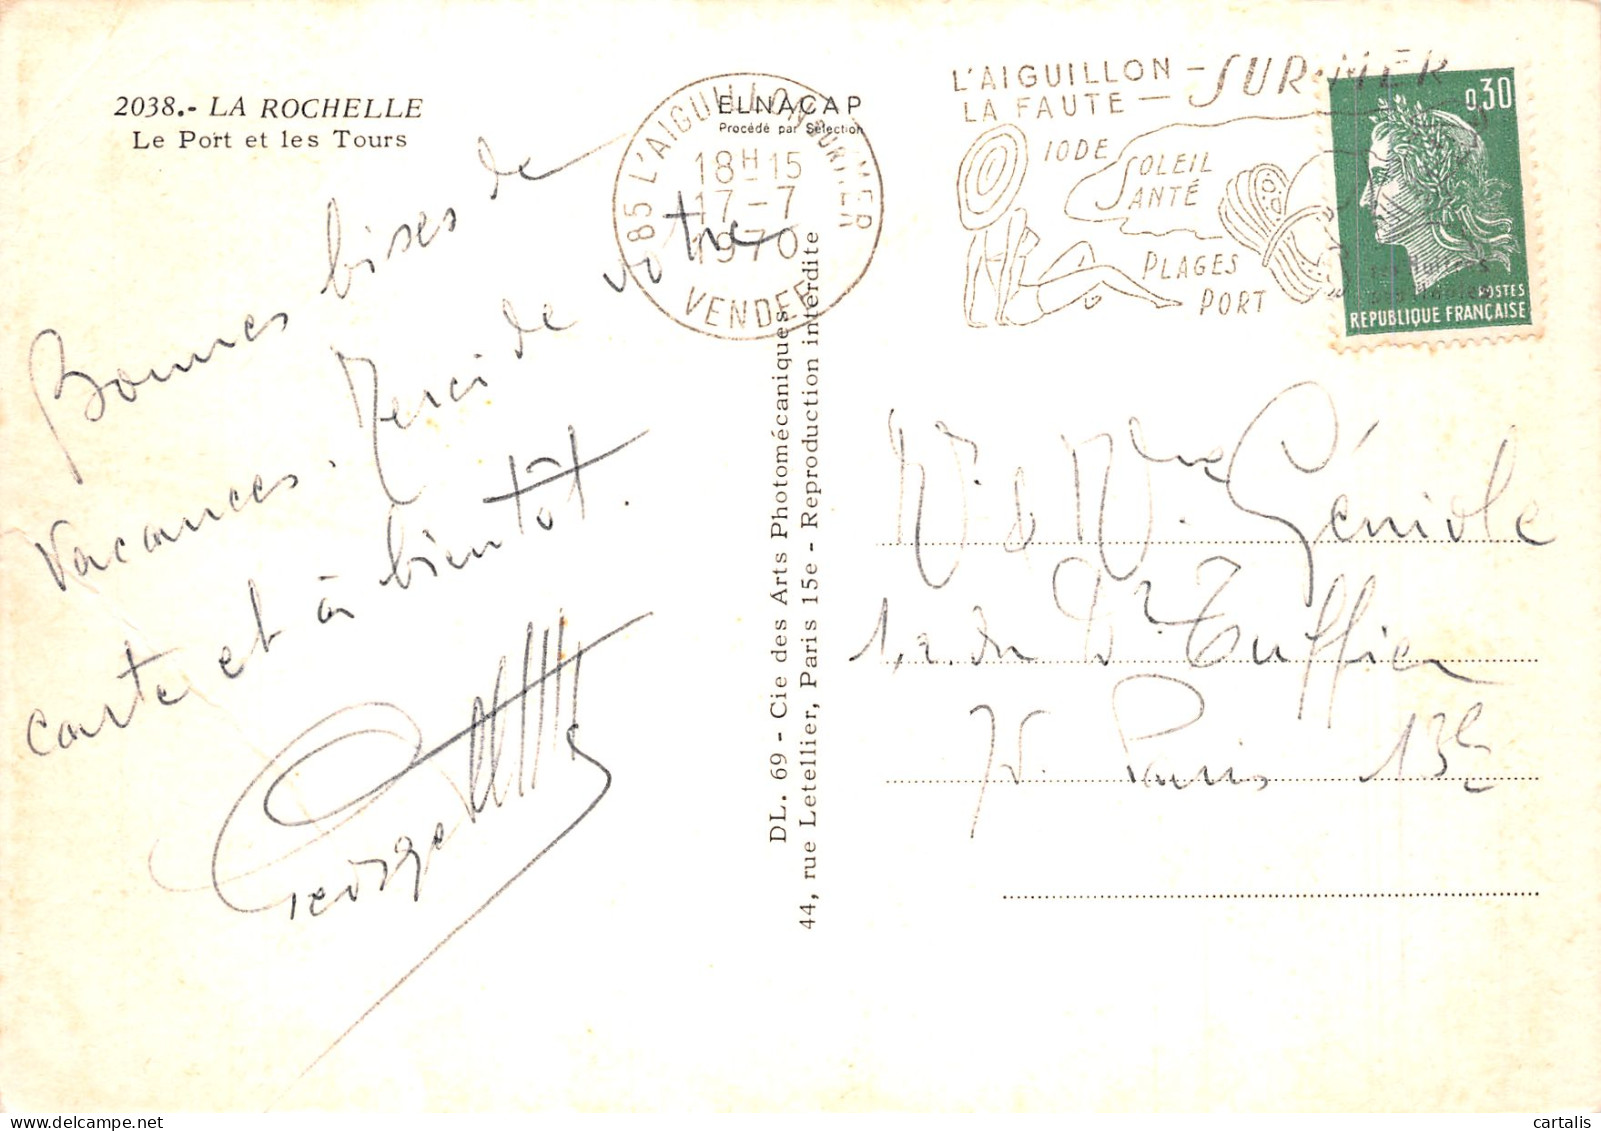 2038.- LA ROCHELLE
Le Port et les Tours
Bonnes bises de
vacances. Merci de votre
carte et à bientôt.
Georgette
ELNACAP
Procédé par Sélection
85 L'AIGUILLON SUR MER
18H15
17-7
1970
VENDEE
L'AIGUILLON - SUR-MER
LA FAUTE -
IODE
SOLEIL
SANTÉ
PLAGES
PORT
0,30
POSTES
REPUBLIQUE FRANÇAISE
DL. 69 - Cie des Arts Photomécaniques
44, rue Letellier, Paris 15e - Reproduction interdite
M. & Mme Géniole
1, r. du Dr Tuffier
75. Paris 13e
cartalis